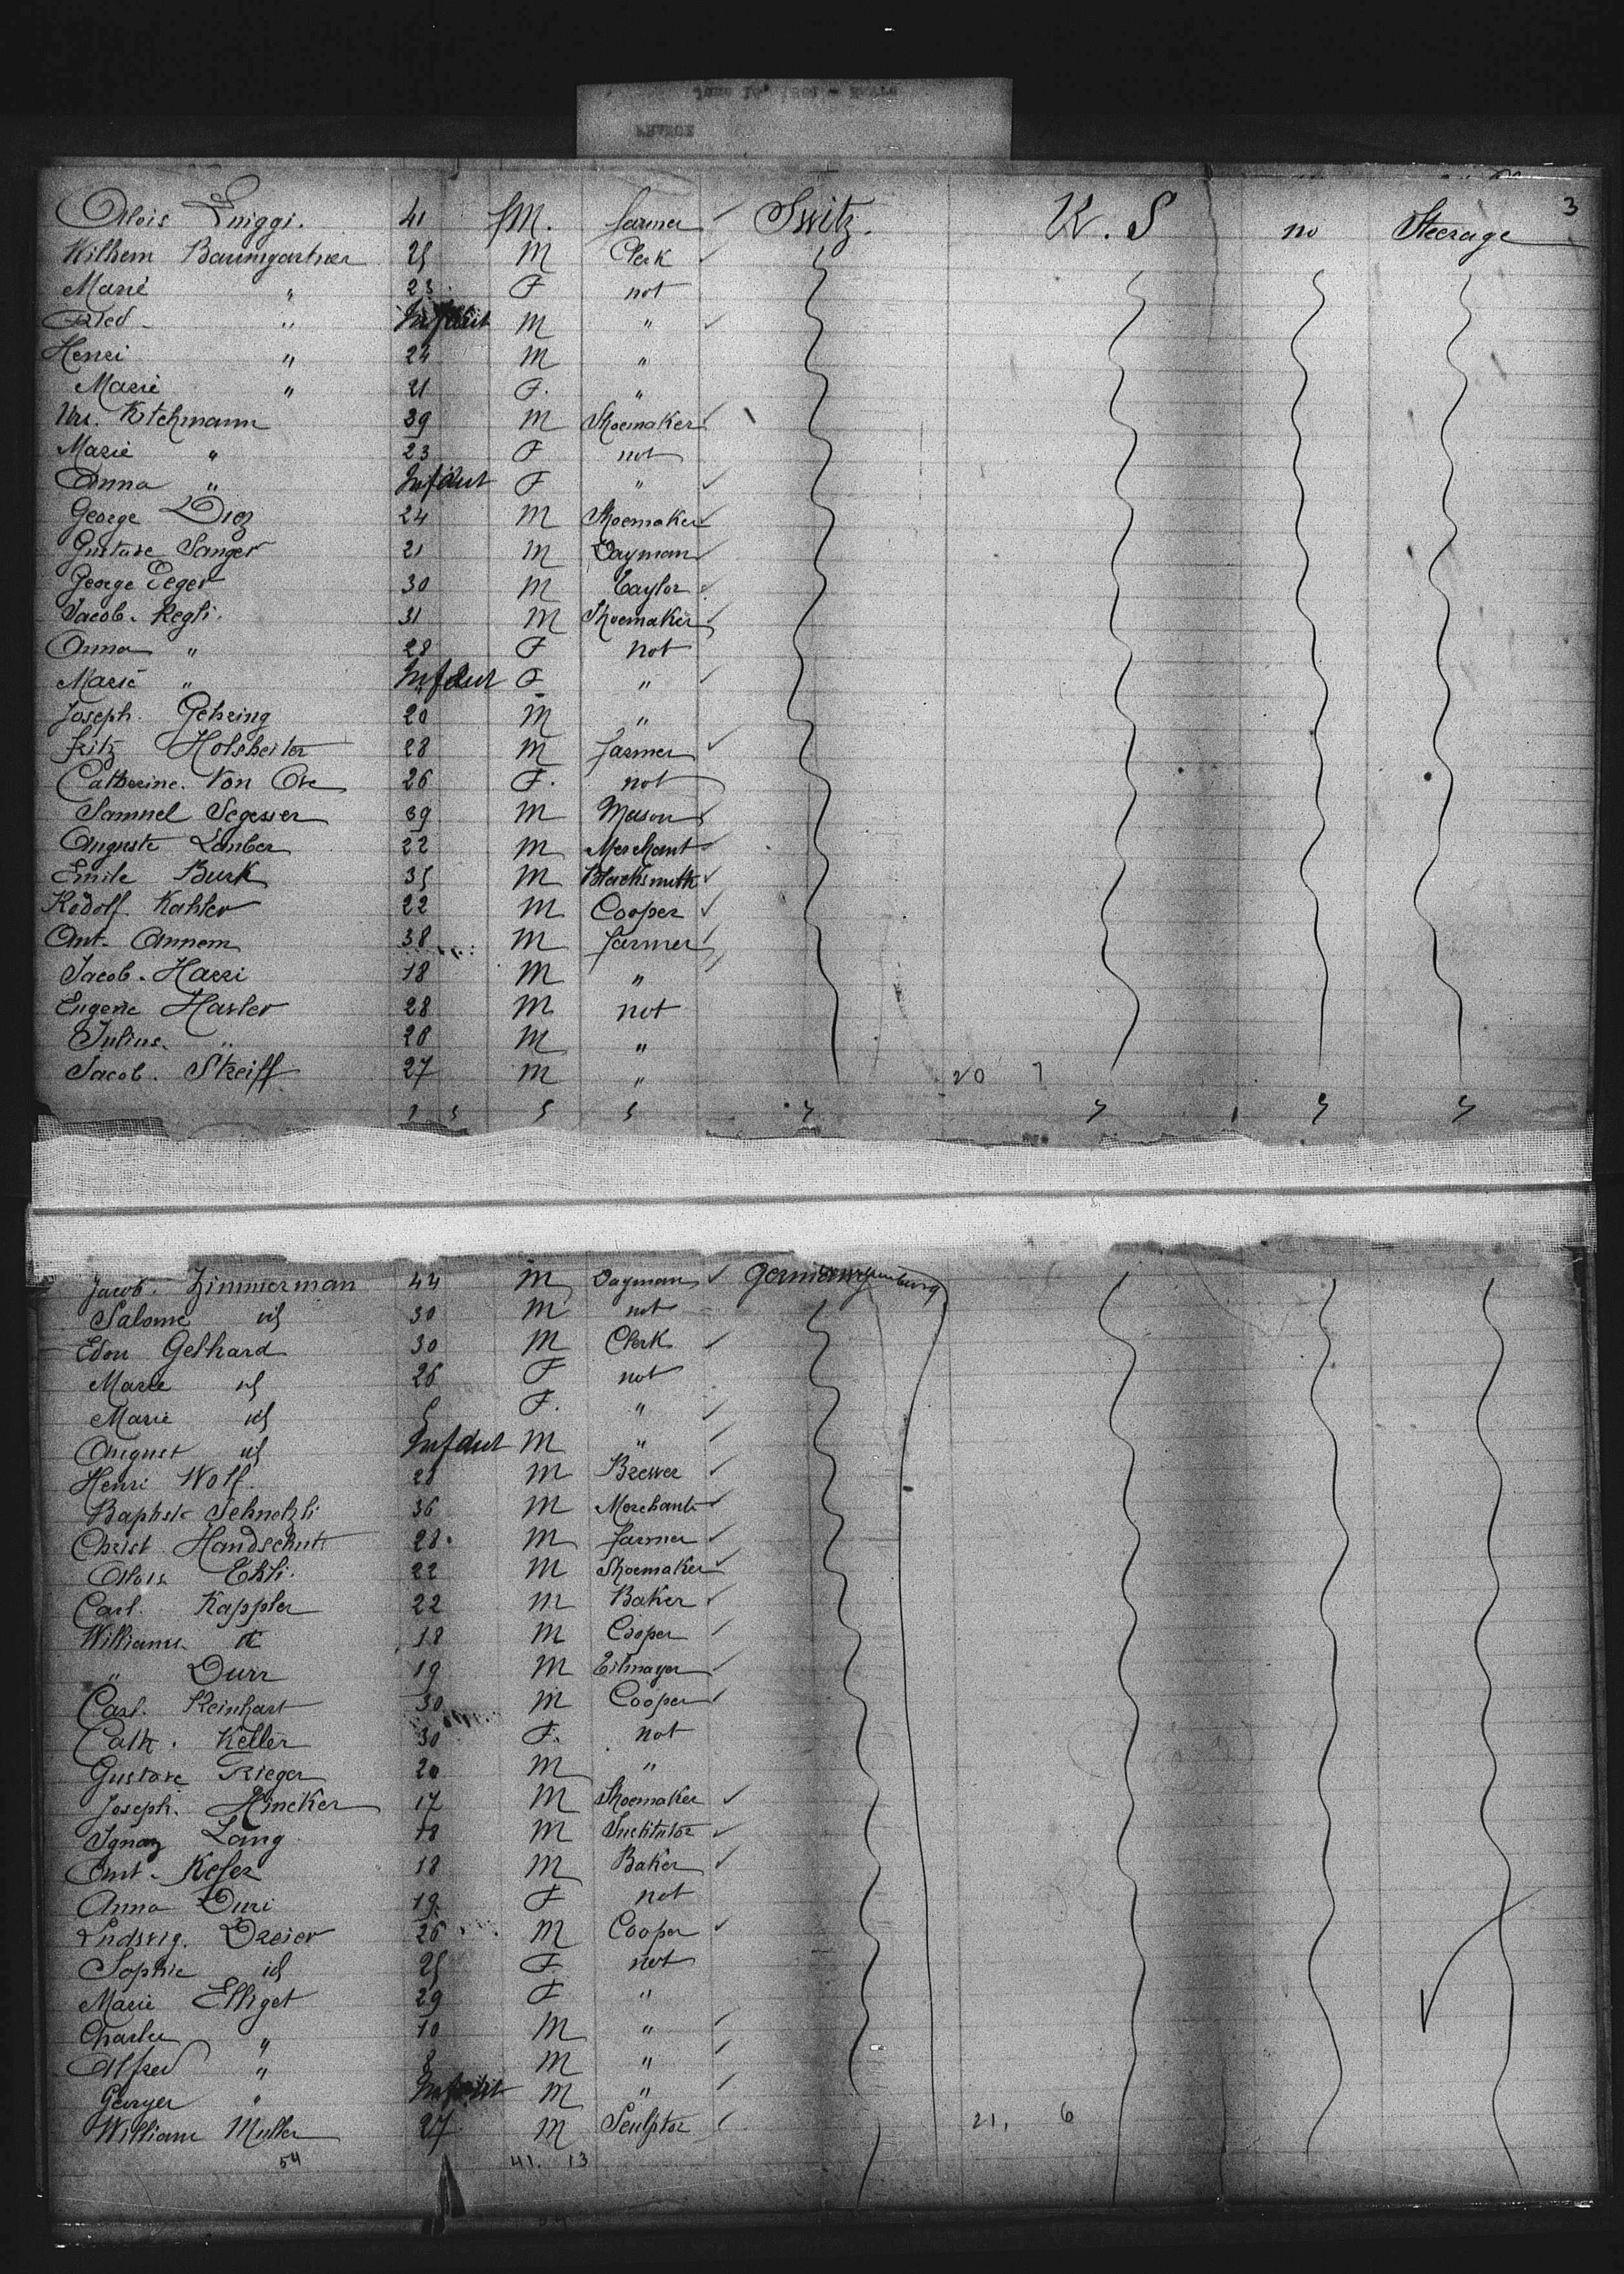 3
Alois Luiggi. 41 M. farmer Switz. U. S no Steerage
Wilhem Baumgartner 25 M Clerk
Marie " 23 F not
Fred " Infant M "
Henri " 24 M "
Marie " 21 F. "
Urs. 39 M Shoemaker
Marie " 23 F not
Anna " Infant F "
George Diez 24 M Shoemaker
Gustave Sanger 21 M Dayman
George Eeger 30 M Taylor
Jacob. Regli. 31 M Shoemaker
Anna " 28 F not
Marie " Infant F "
Joseph. Gehring 20 M "
Fritz Holsheiter 28 M farmer
Catherine. Von 26 F. not
Samuel Segesser 39 M Mason
Auguste 22 M Merchant
Emile Burk 35 M Blacksmith
Rodolf. Kahler 22 M Cooper
Ant. Annem 38 M farmer
Jacob. Harri 18 M "
Eugene Hasler 28 M not
Julius. " 28 M "
Jacob. Streiff 27 M " 20 7
Jacob. Zimmerman 44 M Dayman
Salome id 30 M not
Edou Gelhard 30 M Clerk
Marie id 26 F not
Marie id F. "
August id Infant M "
Henri Wolf. 28 M Brewer
Baptist Schnetzli 36 M Merchant
Christ Handschutt 28. M farmer
Alois 22 M Shoemaker
Carl. Kappler 22 M Baker
Williams 18 M Cooper
" Durr 19 M
Carl. Reinhart 30 M Cooper
Cath. Keller 30 F. not
Gustave Rieger 20 M "
Joseph. Hincker 17 M Shoemaker
Ignaz Lang 18 M Institutor
Ant. Kefer 18 M Baker
Anna Duri 19 F not
Ludwig. Dreier 26 M Cooper
Sophie id 25 F. not
Marie Elliget 29 F "
Charles " 10 M "
Alfred " 8 M "
Georges " Infant M "
William Muller 27 M Sculptor 21, 6
54 41. 13